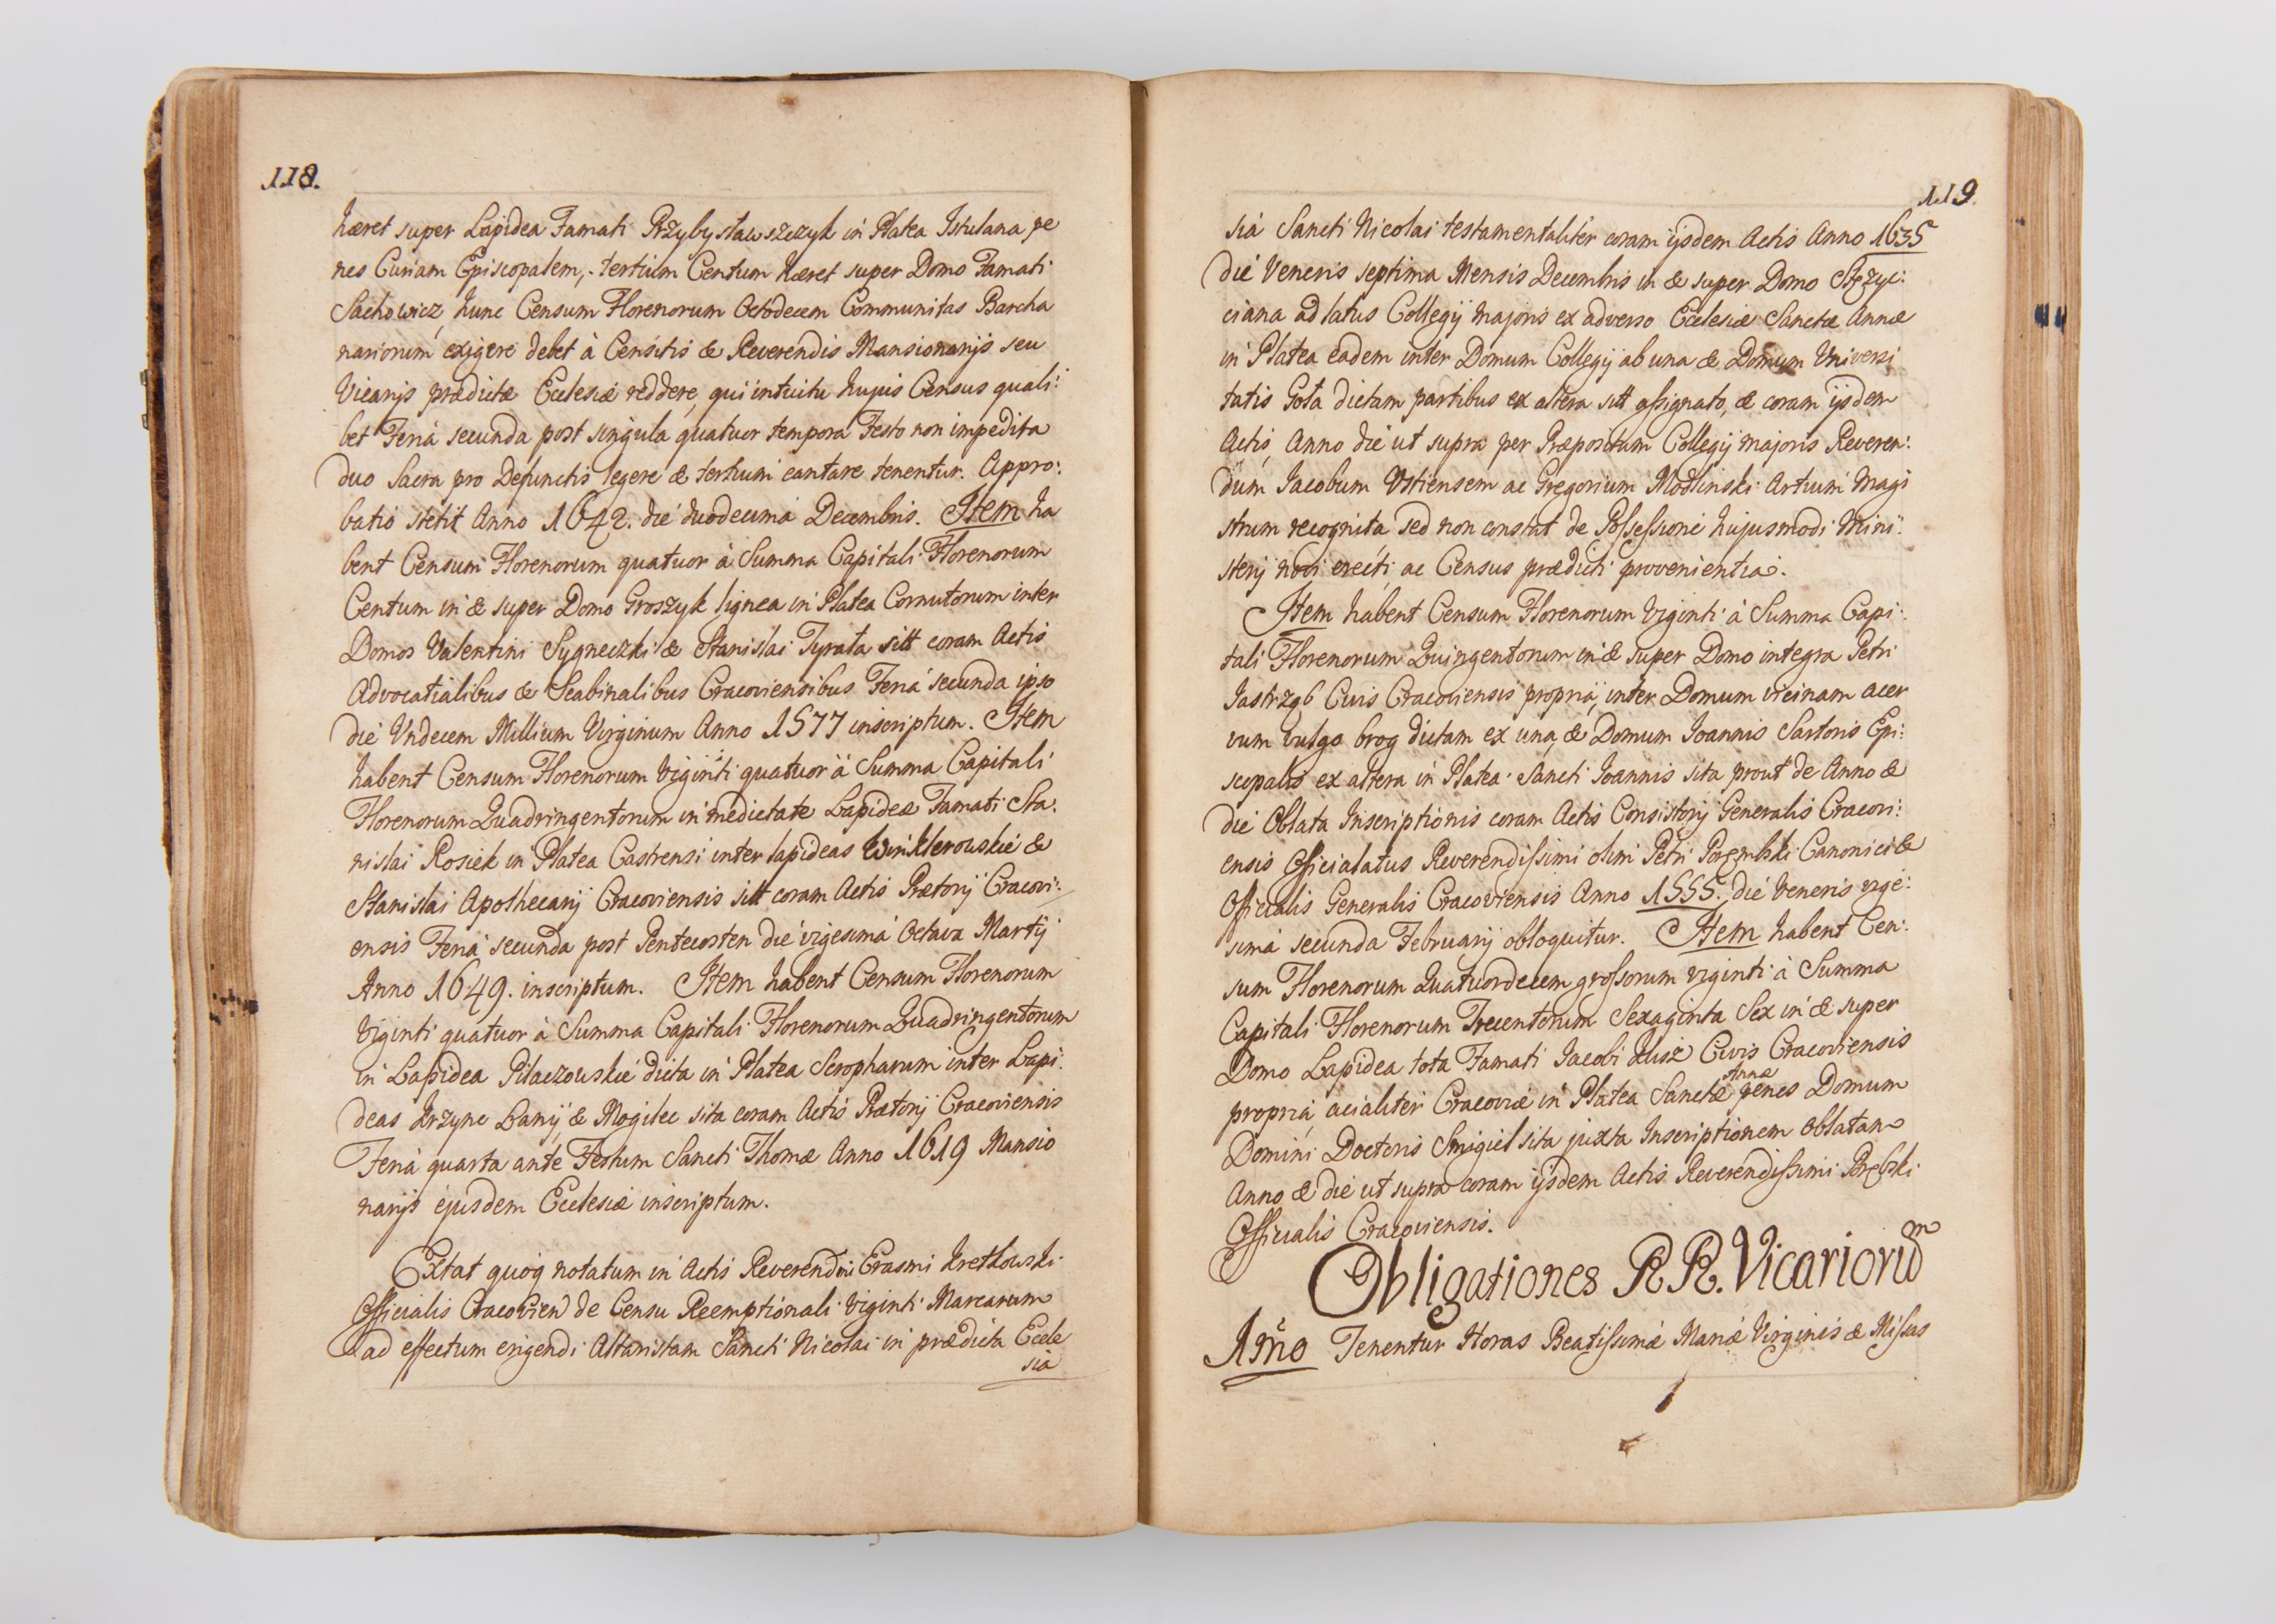 118.
hæret super Lapidea Famati Przybysławszczyk in Platea Istulana pe
nes Curiam Episcopalem, tertium Centum hæret super Domo Famati
Sachowicz, hunc Censum Florenorum Octodecem Communitas Barcha
nariorum exigere debet à Censitis & Reverendis Mansionarijs seu
Vicarijs prædictæ Ecclesiæ reddere, qui intuitu hujus Census quali:
bet Feriâ secunda post singula quatuor tempora Festo non impedita
duo Sacra pro Defunctis legere & tertium cantare tenentur. Appro:
batio stetit Anno 1642. die duodecima Decembris. Item ha
bent Censum Florenorum quatuor à Summa Capitali Florenorum
Centum in & super Domo Groszyk lignea in Platea Cornutorum inter
Domos Valentini Sygneczki & Stanislai Tyrata sitt coram Actis
Advocatialibus & Scabinalibus Cracoviensibus Feriâ secunda ipso
die Undecem Millium Virginum Anno 1577 inscriptum. Item
habent Censum Florenorum Viginti quatuor à Summa Capitali
Florenorum Quadringentorum in medietate Lapideæ Famati Sta:
nislai Rosiek in Platea Castrensi inter lapideas Winklerowskie &
Stanislai Apothecarij Cracoviensis sitt coram Actis Prætorij Cracovi:
ensis Feriâ secunda post Pentecosten die vigesimâ Octava Martij
Anno 1649. inscriptum. Item habent Censum Florenorum
Viginti quatuor à Summa Capitali Florenorum Quadringentorum
in Lapidea Pilaczowskie dicta in Platea Scropharum inter Lapi:
deas Krzync Banij & Mogilec sita coram Actis Prætorij Cracoviensis
Feriâ quarta ante Festum Sancti Thomæ Anno 1619 Mansio
narijs ejusdem Ecclesiæ inscriptum.
Extat quoq notatum in Actis Reverendmi Erasmi Kretkowski
Officialis Cracovien de Censu Reemptionali Viginti Marcarum
ad effectum erigendi Altaristam Sancti Nicolai in prædicta Eccle
sia
119
sia Sancti Nicolai testamentaliter coram ijsdem Actis Anno 1635
die Veneris septima Mensis Decembris in & super Domo Stęzyc:
ciana ad latus Collegij Majoris ex adverso Ecclesiæ Sanctæ Annæ
in Platea eadem inter Domum Collegij ab una & Domum Universi
tatis Gota dictam partibus ex altera sitt assignato, & coram ijsdem
Actis, Anno die ut supra per Præpositum Collegij Majoris Reveren:
dum Jacobum Ustiensem ac Gregorium Modlinski Artium Magi
strum recognita sed non constat de Possessione hujusmodi Mini:
sterij novi erecti ac Census prædicti provenientia.
Item habent Censum Florenorum Viginti à Summa Capi:
tali Florenorum Quingentorum in & super Domo integra Petri
Jastrząb Civis Cracoviensis propriâ, inter Domum vicinam acer
vum vulgo brog dictam ex una, & Domum Joannis Sartoris Epi:
scopalis ex altera in Platea Sancti Joannis sita prout de Anno &
die Oblata Inscriptionis coram Actis Consistorij Generalis Cracovi:
ensis Officialatus Reverendissimi olim Petri Porembski Canonici &
Officialis Generalis Cracoviensis Anno 1555. die Veneris vige:
simâ secunda Februarij obloquitur. Item habent Cen:
sum Florenorum Quatuordecem grossorum viginti à Summa
Capitali Florenorum Trecentorum Sexaginta Sex in & super
Domo Lapidea tota Famati Jacobi Kusz Civis Cracoviensis
propriâ, acialiter Cracoviæ in Platea Sanctæ Annæ penes Domum
Domini Doctoris Smigiel sita juxta Inscriptionem oblatam
Anno & die ut supra coram ijsdem Actis Reverendissimi Porębski
Officialis Cracoviensis.
Obligationes RR. Vicariorum
1mo Tenentur Horas Beatissimæ Mariæ Virginis & Missas